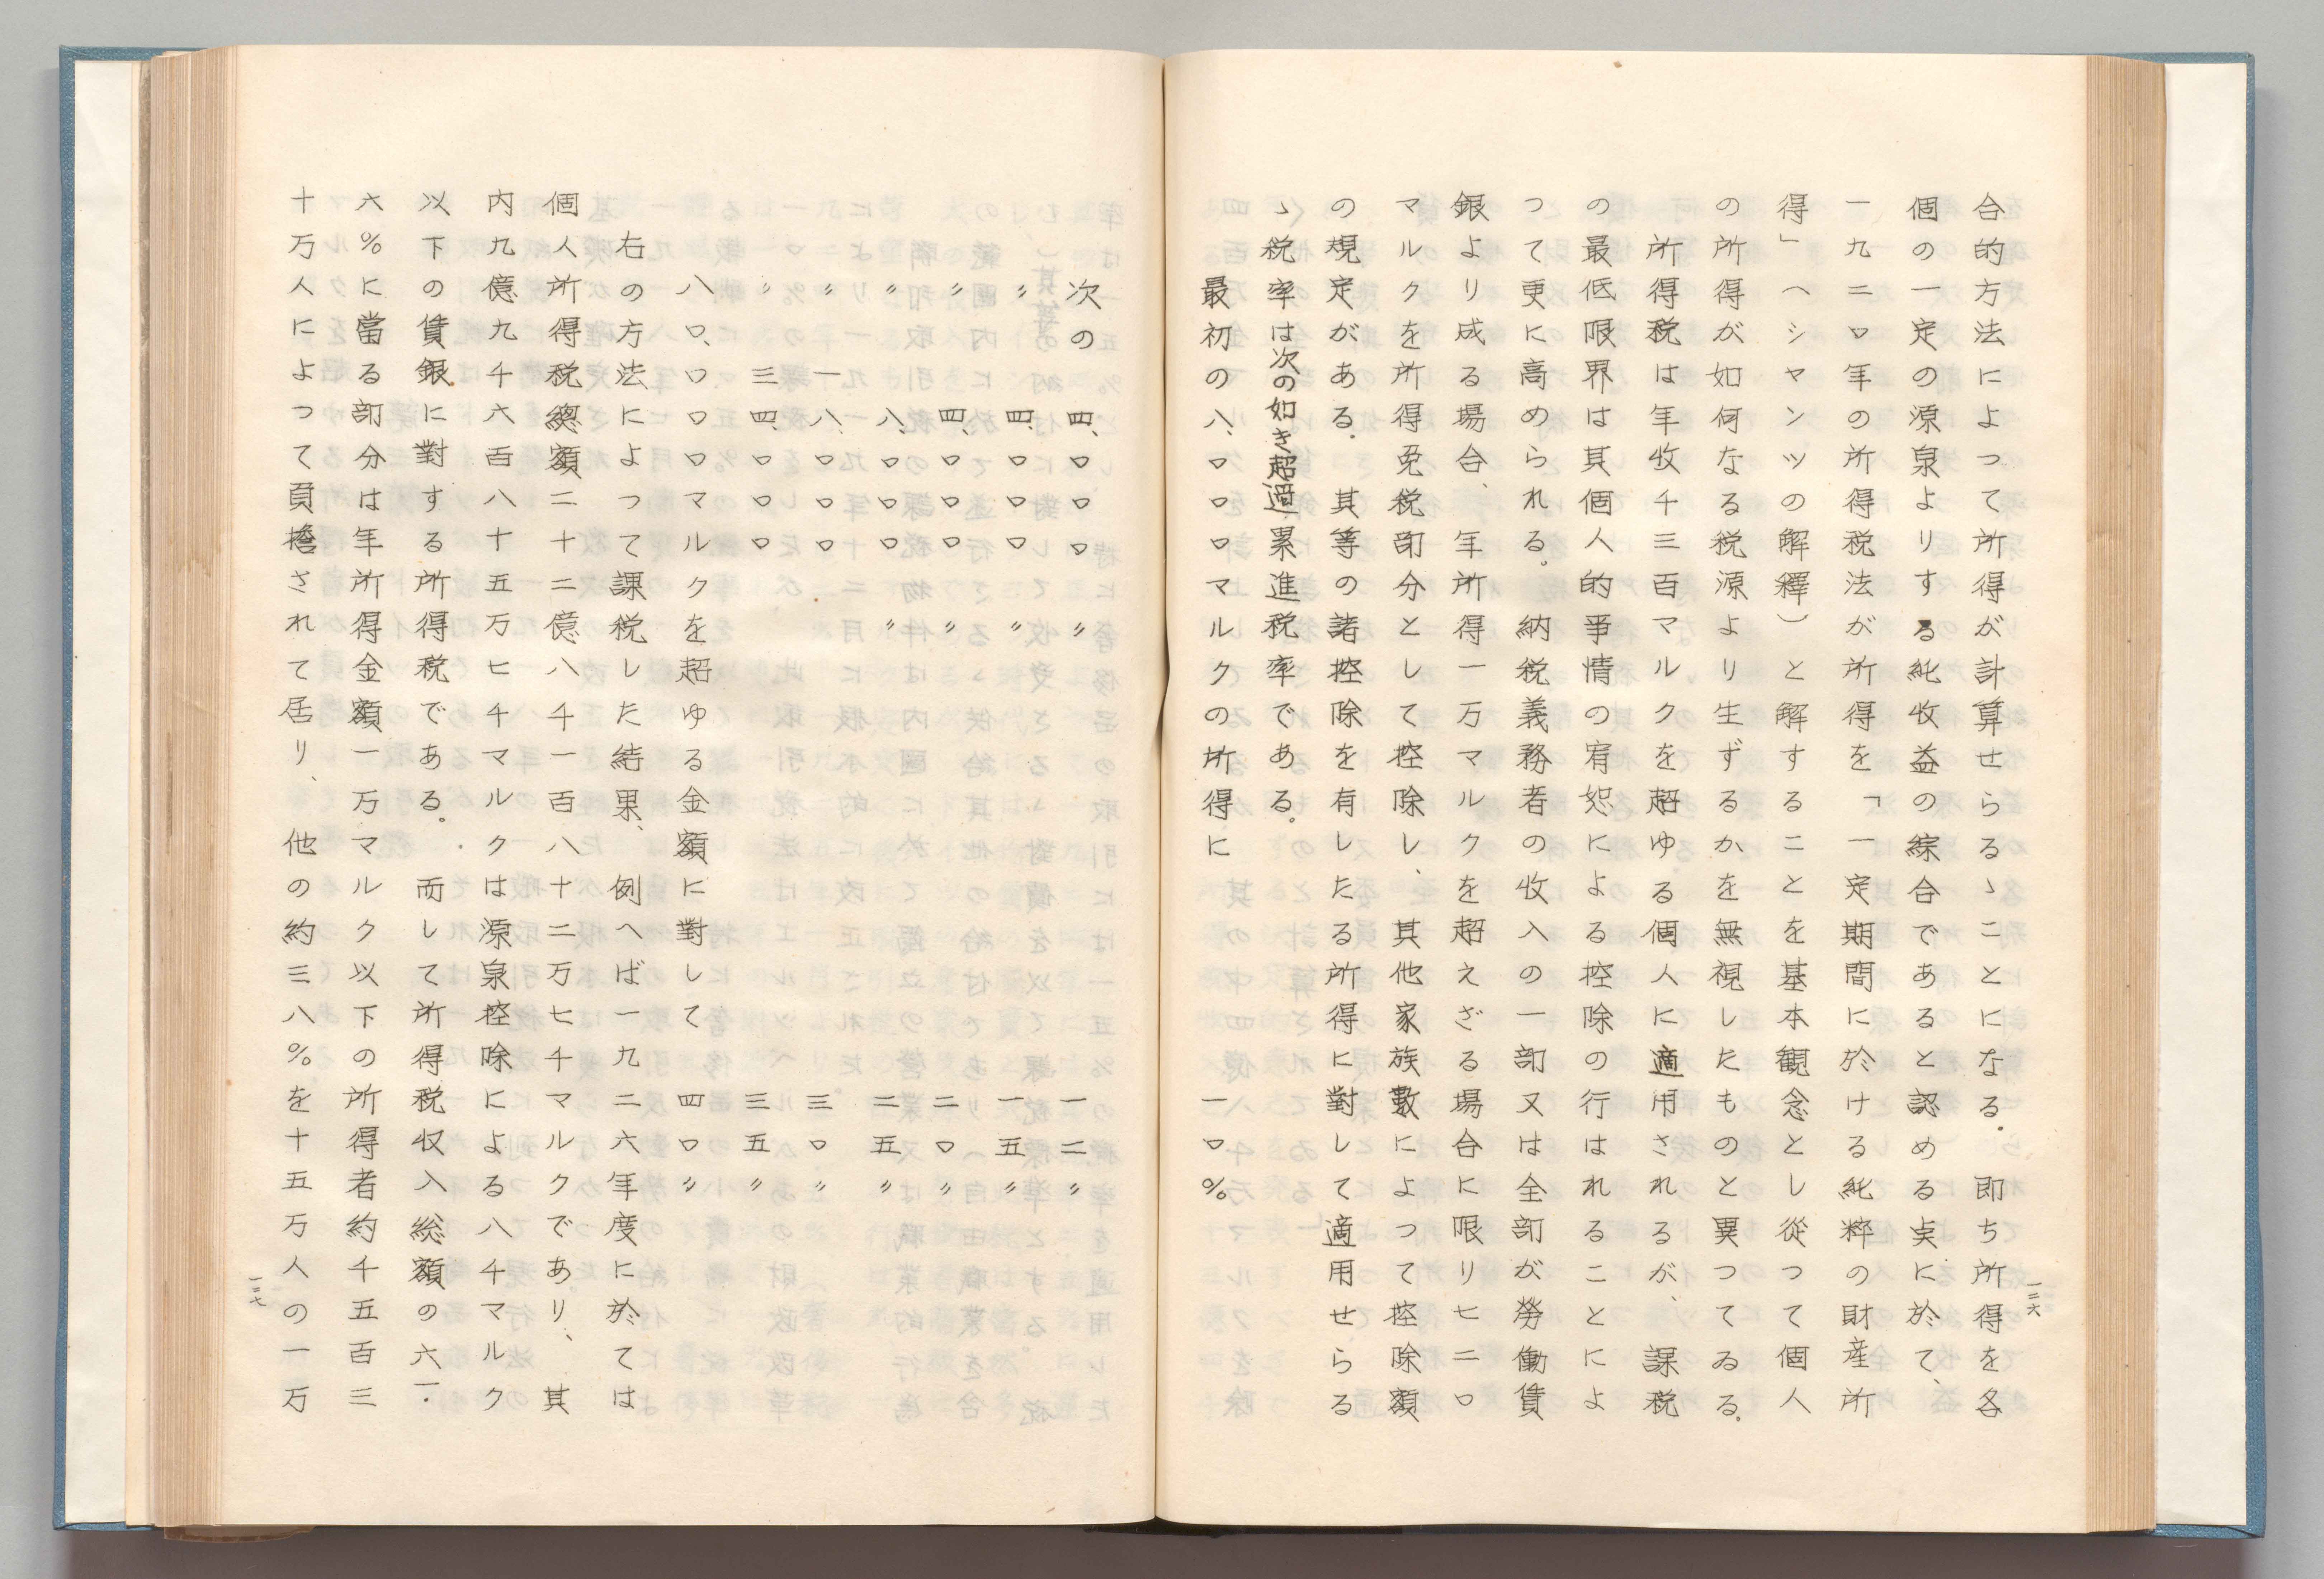 合的方法によつて所得が計算せらるゝことになる. 即ち所得を各
個の一定の源泉よりする純收益の綜合であると認める奌に於て、
一九二〇年の所得税法が所得を「一定期間に於ける純粹の財産所
得」(シャンツの解釋)と解することを基本観念とし從つて個人
の所得が如何なる税源より生ずるかを無視したものと異つてゐる.
所得税は年收千三百マルクを超ゆる個人に適用されるが、課税
の最低限界は其個人的事情の宥恕による控除の行はれることによ
つて更に高められる。納税義務者の收入の一部又は全部が勞働賃
銀より成る場合、年所得一万マルクを超えざる場合に限り七二〇
マルクを所得免税部分として控除し、其他家族數によつて控除額
の規定がある. 其等の諸控除を有したる所得に對して適用せらる
ゝ税率は次の如き超過累進税率である。
最初の八、〇〇〇マルクの所得に 一〇%
一二六
次の 四、〇〇〇〃 一二〃
〃 四、〇〇〇〃 一五〃
〃 四、〇〇〇〃 二〇〃
〃 八、〇〇〇〃 二五〃
〃 一八、〇〇〇 三〇〃
〃 三四、〇〇〇 三五〃
八〇、〇〇〇マルクを超ゆる金額に對して 四〇〃
右の方法によつて課税した結果、例へば一九二六年度に於ては
個人所得税總額二十二億八千一百八十二万七千マルクであり、其
内九億九千六百八十五万七千マルクは源泉控除による八千マルク
以下の賃銀に對する所得税である。而して所得税収入総額の六一.
六%に當る部分は年所得金額一万マルク以下の所得者約千五百三
十万人によつて負擔されて居り、他の約三八%を十五万人の一万
一二七